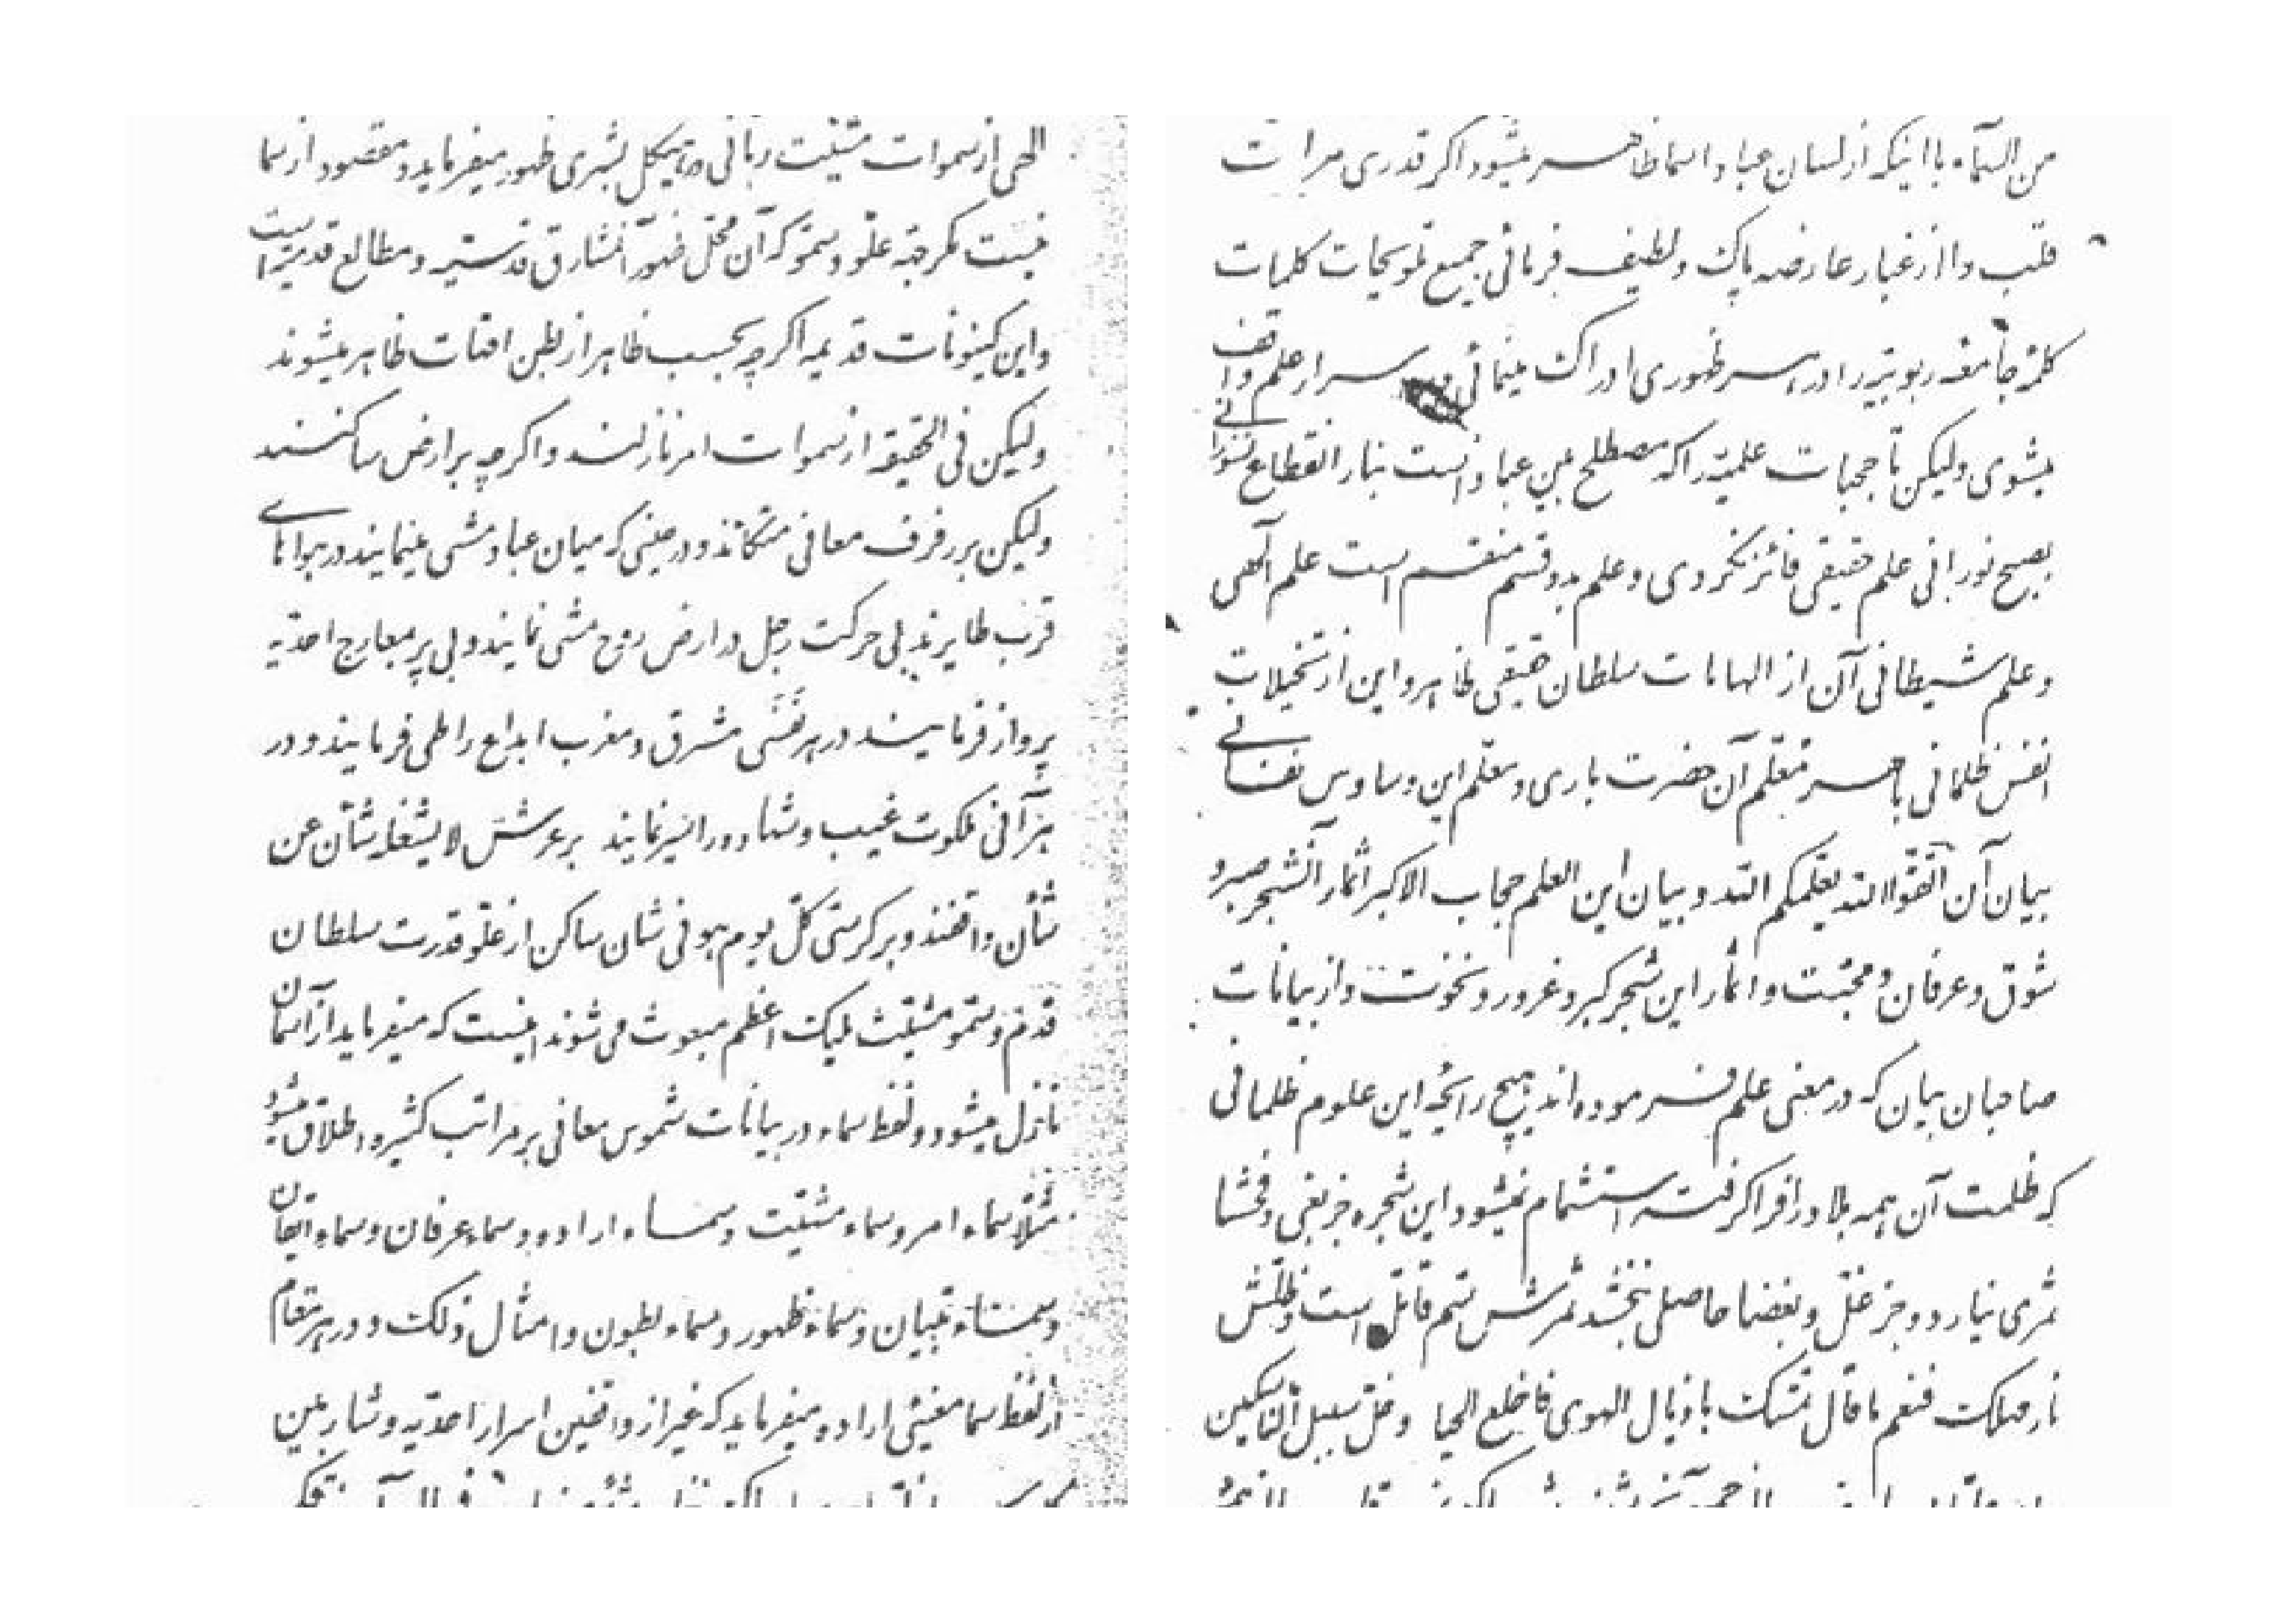 الهی از سموات مشیت ربانی در هیکل بشری ظهور میفرماید و مقصود از سما
نیست مگر جهة علو و سمو که آن محل ظهور آن مشارق قدسیه و مطالع قدیمه است
و این کینونات قدیمه اگر چه بحسب ظاهر از بطن امّهات ظاهر میشوند
ولیکن فی الحقیقه از سموات امر نازلند و اگر چه بر ارض ساکنند
ولیکن بر رفرف معانی متکائند و در حینی که میان عباد مشی مینمایند در هواهای
قرب طایرند بی حرکت رجل در ارض روح مشی نمایند و بی پر بمعارج احدیه
پرواز فرمایند در هر نفسی مشرق و مغرب ابداع را طی فرمایند و در
هر آنی ملکوت غیب و شهاده را سیر نمایند بر عرش لا یشغله شأن عن
شأن واقفند و بر کرسی کلّ یوم هو فی شان ساکن از علوّ قدرت سلطان
قدم و سمو مشیّت ملیک اعظم مبعوث می شوند اینست که میفرماید از آسمان
نازل میشود و لفظ سماء در بیانات شموس معانی بر مراتب کثیره اطلاق میشود
مثلا سماء امر و سماء مشیّت و سماء اراده و سماء عرفان و سماء ایقان
و سماء تبیان و سماء ظهور و سماء بطون و امثال ذلک و در هر مقام
از لفظ سما معنیی اراده میفرماید که غیر از واقفین اسرار احدیه و شاربین
من السماء با اینکه از لسان عباد اسما ظاهر میشود اگر قدری مرات
قلب را از غبار عارضه پاک و لطیف فرمائی جمیع تلویحات کلمات
کلمهٔ جامعه ربوبیّه را در هر ظهوری ادراک مینمائی و بر اسرار علم واقف
میشوی ولیکن تا حجبات علمیّه را که مصطلح بین عباد است بنار انقطاع نسوزانی
بصبح نورانی علم حقیقی فائز نگردی و علم بدو قسم منقسم است علم الهی
و علم شیطانی آن از الهامات سلطان حقیقی ظاهر و این از تخیلات
انفس ظلمانی باهر معلّم آن حضرت باری و معلّم این وساوس نفسانی
بیان آن اتّقوا الله یعلّمکم الله و بیان این العلم حجاب الاکبر اثمار آن شجر صبر و
شوق و عرفان و محبّت و اثمار این شجر کبر و غرور و نخوت و از بیانات
صاحبان بیان که در معنی علم فرموده اند هیچ رایحهٔ این علوم ظلمانی
که ظلمت آن همه بلاد را فرا گرفته استشمام نمیشود این شجره جز بغی و فحشا
ثمری نیارد و جز غلّ و بغضا حاصلی نبخشد ثمرش سمّ قاتل است و ظلّش
نار مهلک فنعم ما قال تمسّک باذیال الهوی فاخلع الحیا و خلّ سبیل النّاسکین